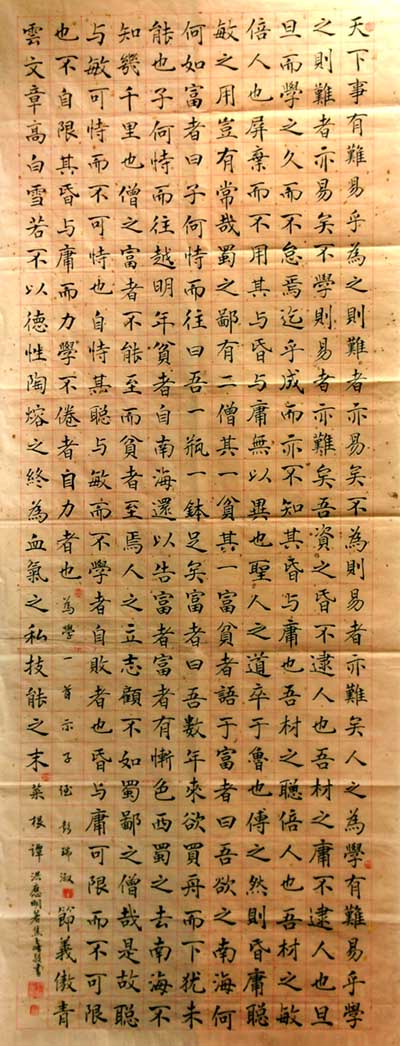 天下事有難易乎為之則難者亦易矣不為則易者亦難矣人之為學有難易乎學
之則難者亦易矣不學則易者亦難矣吾資之昏不逮人也吾材之庸不逮人也旦
旦而學之久而不怠焉迄乎成而亦不知其昏与庸也吾材之聰倍人也吾材之敏
倍人也屏棄而不用其与昏与庸無以異也聖人之道卒于魯也傅之然則昏庸聰
敏之用豈有常哉蜀之鄙有二僧其一貧其一富貧者語于富者曰吾欲之南海何
何如富者曰子何恃而往曰吾一瓶一鉢足矣富者曰吾數年來欲買舟而下犹未
能也子何恃而往越明年貧者自南海還以告富者富者有慚色西蜀之去南海不
知幾千里也僧之富者不能至而貧者至焉人之立志顧不如蜀鄙之僧哉是故聰
与敏可恃而不可恃也自恃其聰与敏而不學者自敗者也昏与庸可限而不可限
也不自限其昏与庸而力學不倦者自力者也為學一首示子侄彭端淑節義傲青
雲文章高白雪若不以德性陶熔之終為血氣之私技能之末菜根譚洪應明著書